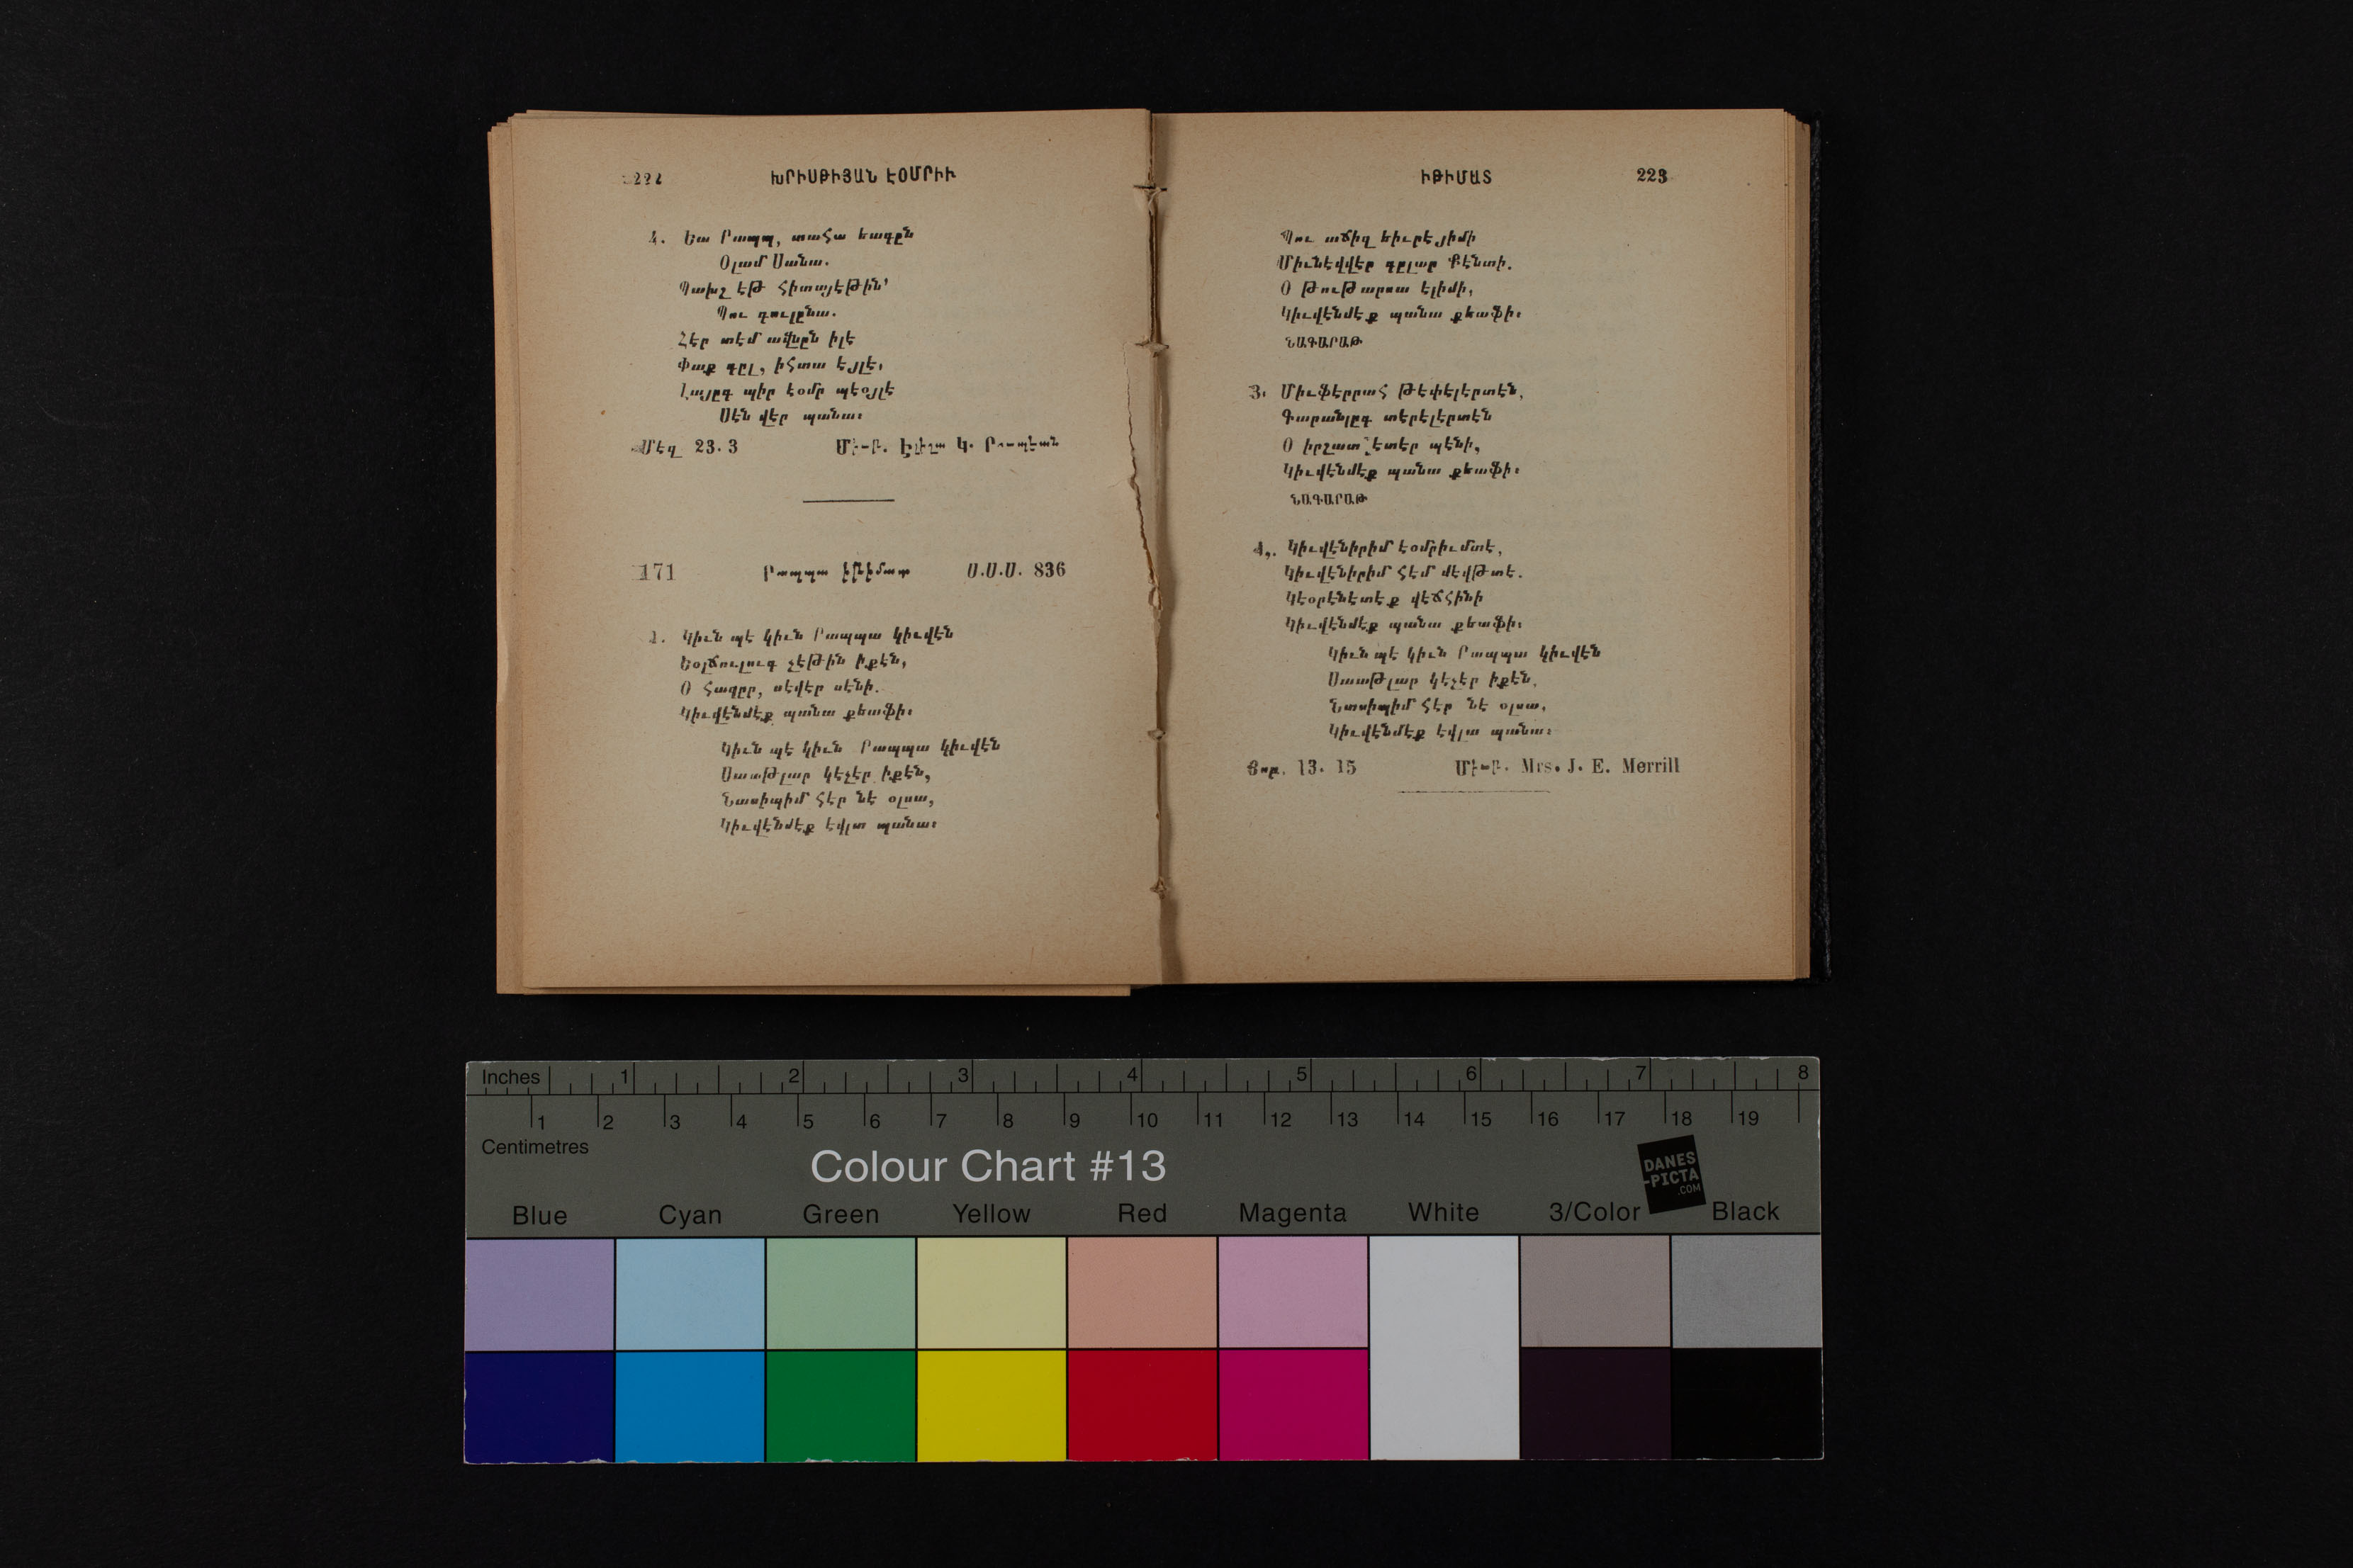 222 ԽՐԻՍԹԻՅԱՆ ԷՕՄՐԻՒ
4. Եա Րապպ, տահա եագըն
Օլամ Սանա.
Պախշ էթ հիտայէթին՝
Պու գուլընա.
Հէր տէմ ավնըն իլէ
Փաք գըլ, իհտա էյլէ,
Լայըգ պիր էօմր պէօյլէ
Սէն վէր պանա։
Մեզ 23. 3 Միւթ. Կ.
171 Րապպա իթիմատ Ս.Ս.Ս. 836
1. Կիւն պէ կիւն Րապպա կիւվէն
Եօլճուլուգ չէթին իքէն,
Օ հազըր, սէվէր սէնի.
Կիւվէնմէք պանա քեաֆի։
Կիւն պէ կիւն Րապպա կիւվէն
Սաաթլար կէչէր իքէն,
Նասիպիմ հէր նէ օլսա,
Կիւվէնմէք էվլա պանա։
ԻԹԻՄԱՏ 223
Պու աճիզ եիւրէյիմի
Միւնէվվէր գըլար Քէնտի.
Օ թութարսա էլիմի,
Կիւվէնմէք պանա քեաֆի։
ՆԱԳԱՐԱԹ
3. Միւֆէրրահ թէփէլէրտէն,
Գարանլըգ տէրէլէրտէն
Օ իրշատ էտէր պէնի,
Կիւվէնմէք պանա քեաֆի։
ՆԱԳԱՐԱԹ
4. Կիւվէնիրիմ էօմրիւմտէ,
Կիւվէնիրիմ հէմ մէվթտէ.
Կէօրէնէտէք վէճհինի
Կիւվէնմէք պանա քեաֆի։
Կիւն պէ կիւն Րապպա կիւվէն
Սաաթլար կէչէր իքէն,
Նասիպիմ հէր նէ օլսա,
Կիւվէնմէք էվլա պանա։
Յոբ. 13. 15 Միւթ. Mrs. J. E. Merrill
Inches 1 2 3 4 5 6 7 8
1 2 3 4 5 6 7 8 9 10 11 12 13 14 15 16 17 18 19
Centimetres
Colour Chart #13
DANES
-PICTA
.COM
Blue Cyan Green Yellow Red Magenta White 3/Color Black